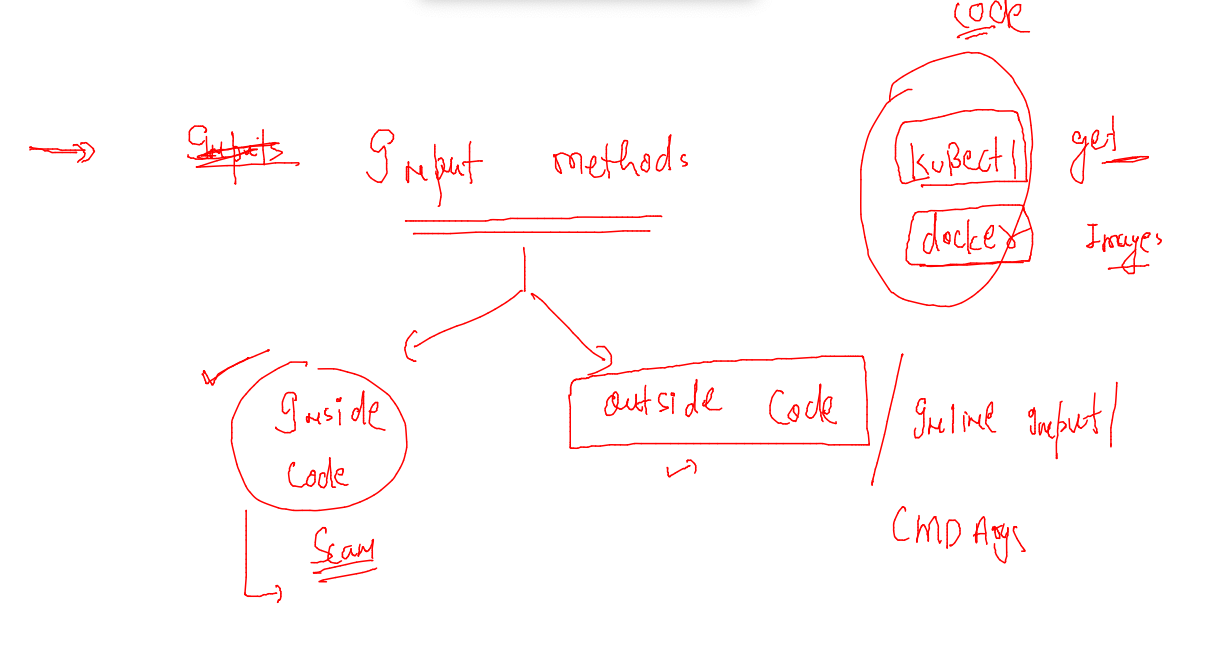 code
Input methods
kuBectl get
docker Images
Inside
Code
outside Code
Inline Input
Scan
CMD Args